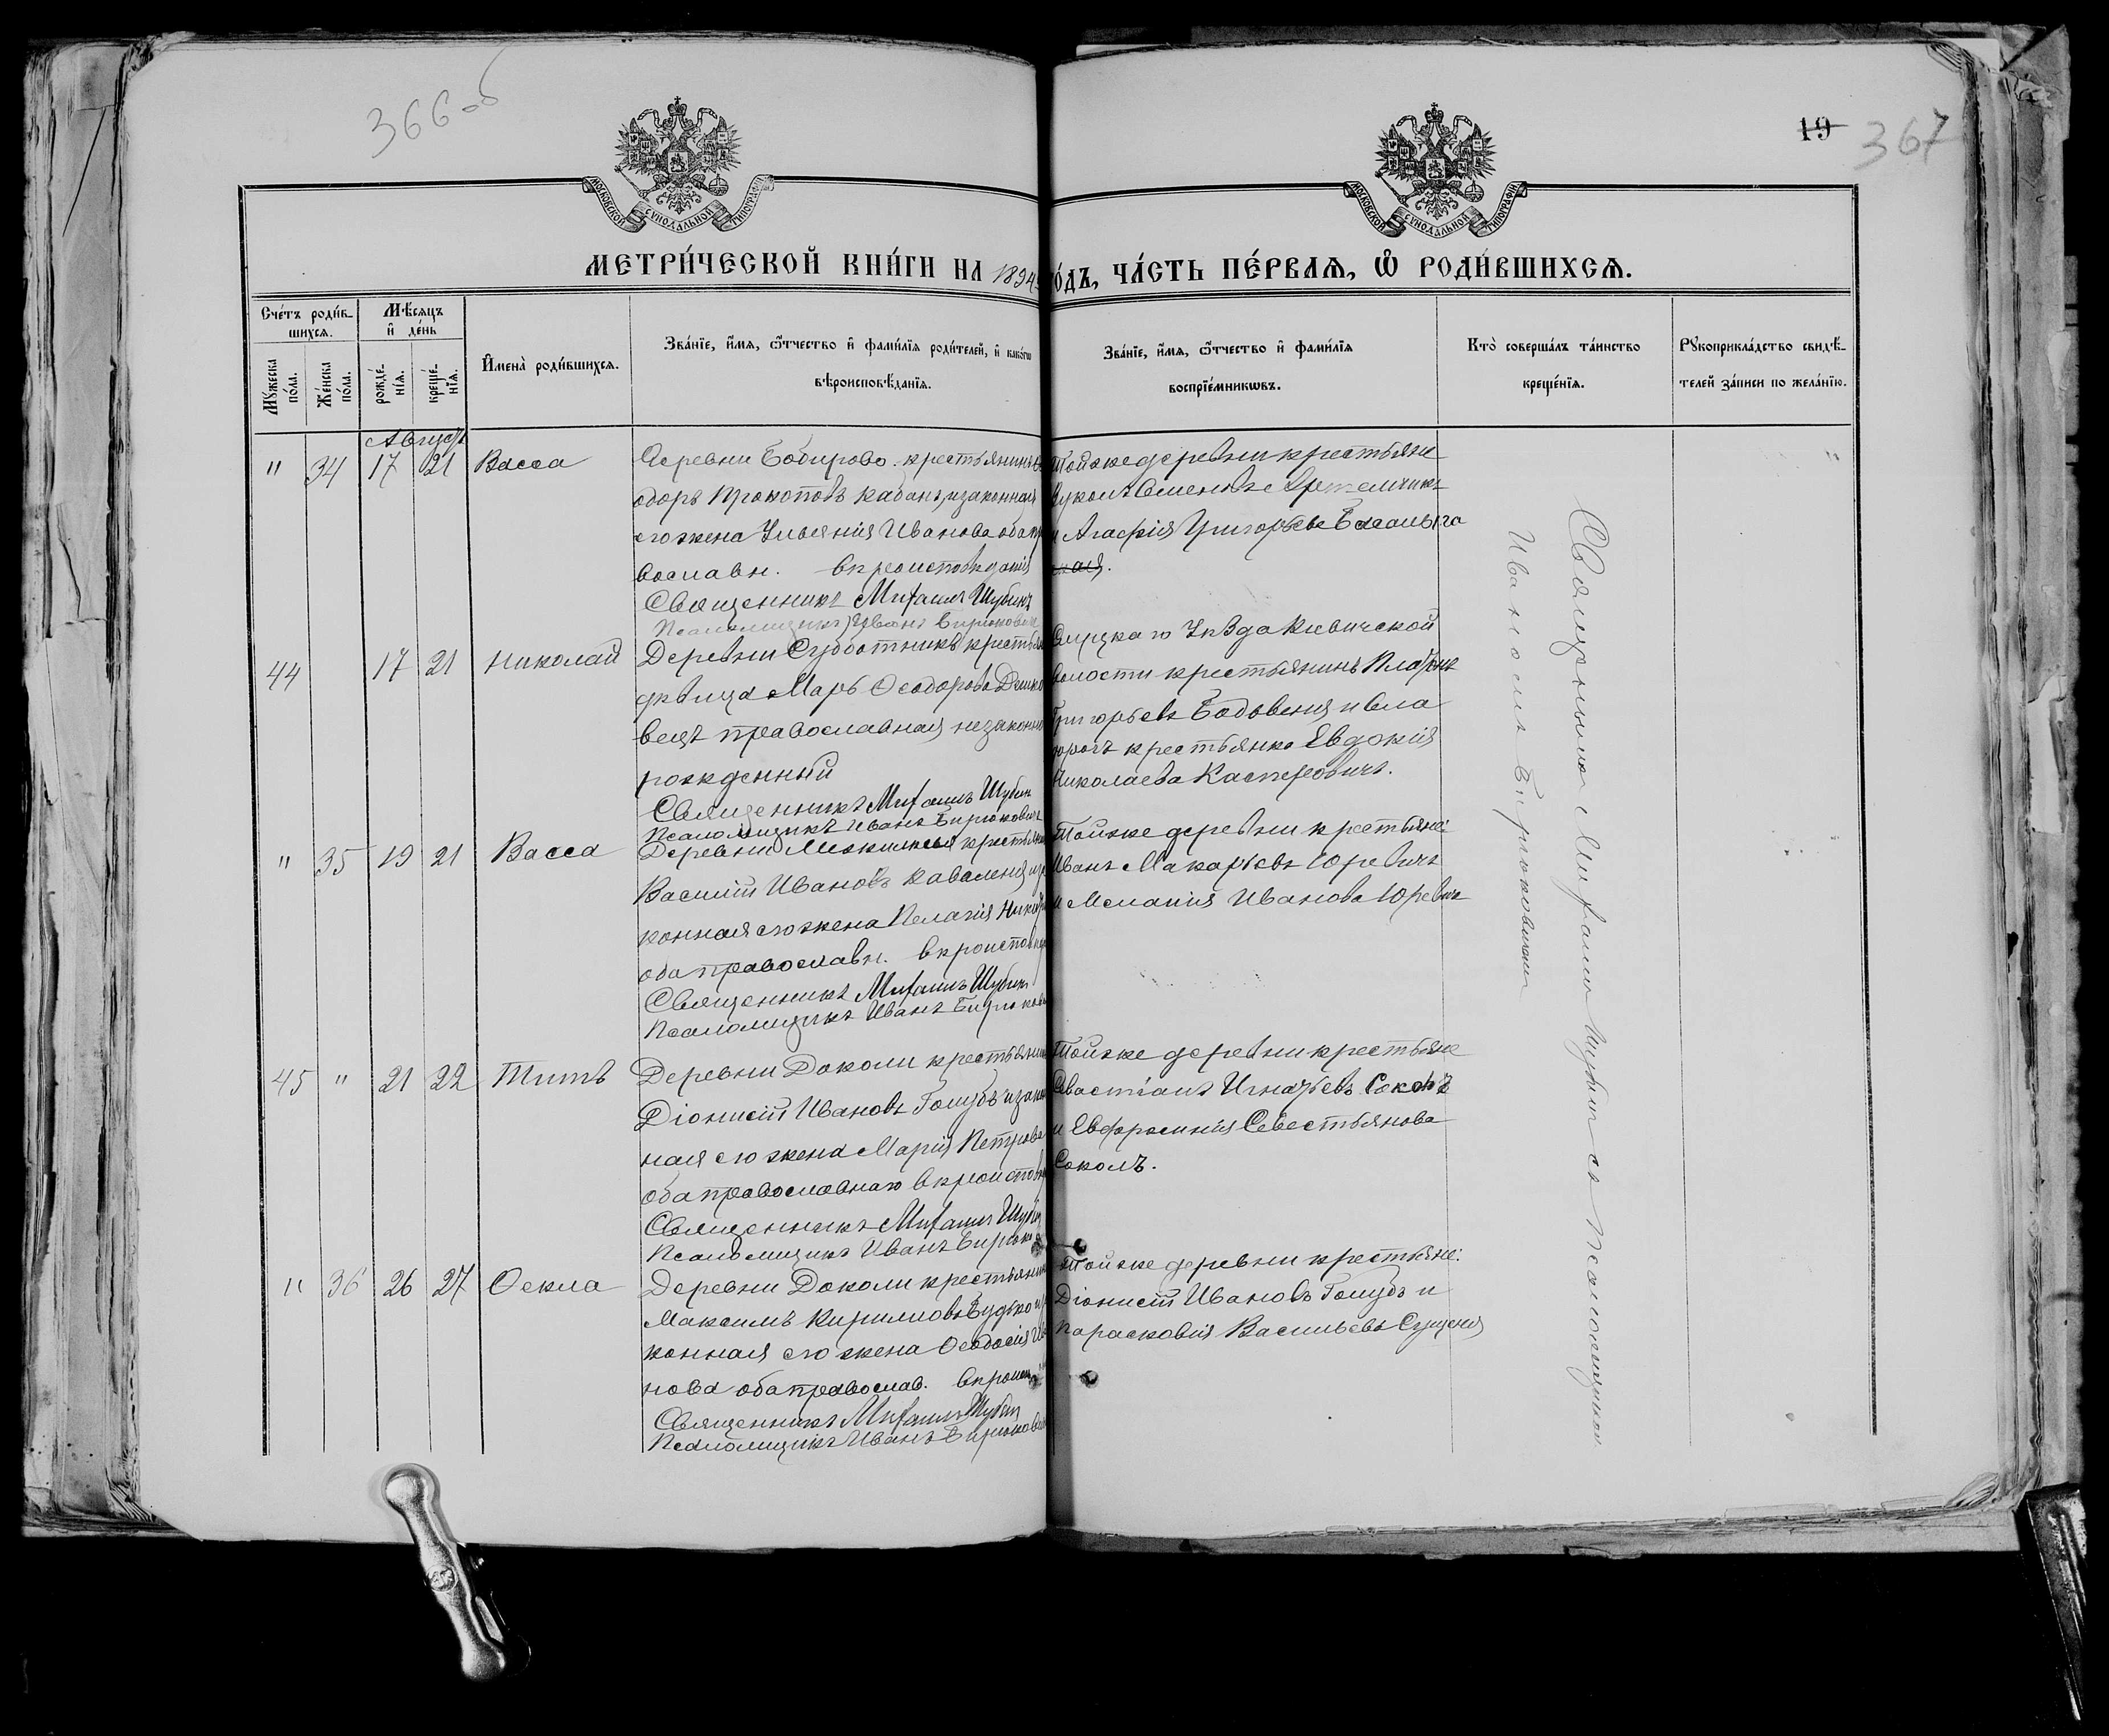 366 об
19
367
МОСКОВСКОЙ СѴНОДАЛЬНОЙ ТИПОГРАФІИ
МОСКОВСКОЙ СѴНОДАЛЬНОЙ ТИПОГРАФІИ
МЕТРИ́ЧЕСКОЙ КНИ́ГИ НА 1894 ГО́ДЪ, ЧА́СТЬ ПЕ́РВАЯ, Ѡ҆ РОДИ́ВШИХСЯ.
Сче́тъ роди́в-
шихся.
Мꙋ́жеска по́ла.
Же́нска по́ла.
Мѣ́сяцъ
и҆ де́нь
рожде́-
нїя.
креще́-
нїя.
И҆мена̀ роди́вшихся.
Зва́нїе, и҆́мя, ѻ҆́тчество и҆ фами́лїя роди́телей, и҆ како́гѡ
вѣроисповѣ́данїя.
Зва́нїе, и҆́мя, ѻ҆́тчество и҆ фами́лїя
воспрїе́мникѡвъ.
Кто̀ соверша́лъ та́инство
креще́нїя.
Рꙋкоприкла́дство свидѣ́-
телей за́писи по жела́нїю.
Августъ
" 34 17 21 Васса
Деревни Бобирово крестьянинъ
одоръ Прокоповъ Кабанъ, и законная
его жена Ульянія Иванова оба пра
вославн. вѣроисповѣданія
Священникъ Михаилъ Шубинъ
Псаломщикъ Иванъ Бирюковичъ
Той же деревни крестьяне
Семеновъ Артемчикъ
и Агафія Григорьева
44 17 21 Николай
Деревни Субботники крестьян
дѣвица Марѳ Ѳеодорова
православная незаконно
рожденный
Священникъ Михаилъ Шубин
Псаломщикъ Иванъ Бирюковичъ
Слуцкаго Уѣзда Киевичской
волости крестьянинъ
Григорьевъ Бадовеня и
крестьянка Евдокія
Николаева Касперовичъ.
" 35 19 21 Васса
Деревни крестьянин
Василій Ивановъ Каваленя и за
конная его жена Пелагія
оба православн. вѣроисповѣд
Священникъ Михаилъ Шубин
Псаломщикъ Иванъ Бирюков
Той же деревни крестьяне:
Иванъ Макарьевъ Юревичъ
и Меланія Иванова Юревичъ
45 " 21 22 Титъ
Деревни Доколи крестьянин
Діонисій Ивановъ Голубъ и закон
ная его жена Марія Петрова
оба православнаго вѣроисповѣ
Священникъ Михаилъ Шубин
Псаломщикъ Иванъ Бирюков
Той же деревни крестьяне
Севастіанъ Игнатьевъ Соколъ
и Евфросинія Севестьянова
Соколъ.
" 36 26 27 Ѳекла
Деревни Доколи крестьянин
Максимъ Кириловъ Будько и за
конная его жена Ѳеодосія Ива
нова оба православ. вѣроисп
Священникъ Михаилъ Шубин
Псаломщикъ Иванъ Бирюкович
Той же деревни крестьяне:
Діонисій Ивановъ Голубъ и
Парасковія Васильева Сущеня
Священникомъ Михаиломъ Шубинымъ съ псаломщикомъ
Иваномъ Бирюковичемъ